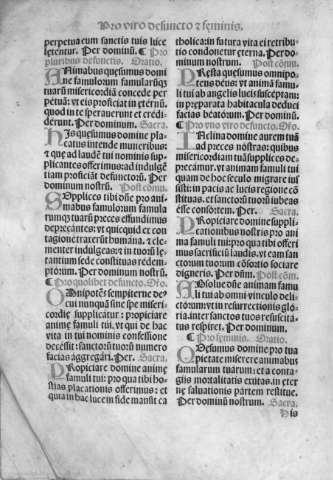 Pro viro defuncto & feminis.
perpetua cum sanctis tuis luce
letentur. Per dominũ. Pro
pluribus defunctis. Oratio.
Animabus quesumus domi
ne famulorum famularũqȝ
tuarũ misericordiã concede per
petuã: vt eis proficiat in eternũ.
quod in te sperauerunt et credi
derunt. Per dominum. Sacra.
His quesumus domine pla
catus intende muneribus:
& que ad laudẽ tui nominis sup
plicantes offerimus: ad indulgẽ
tiam proficiãt defunctorũ. Per
dominum nostrũ. Post cõmu.
Supplices tibi dñe pro ani
mabus famulorum famula
rumqȝ tuarũ preces effundimus
deprecantes: vt quicquid et con
tagione traxerũt humana, & cle
menter indulgeas: & in tuorũ le
tantium sede constituas redem
ptorum. Per dominum nostrũ.
Pro quolibet defuncto. Oro.
Omnipotẽs sempiterne de
us cui nunquã sine spe miseri
cordie supplicatur: propiciare
anime famuli tui. vt qui de hac
vita in tui nominis confessione
decessit: sanctorũ tuorũ numero
facias aggregari. Per. Sacra.
Propiciare domine anime
famuli tui: pro qua tibi ho
stias placationis offerimus: et
quia in hac luce in fide mansit ca
tholica: in futura vita ei retribu
tio condonetur eterna. Per do
minum nostrum. Post cõmu.
Presta quesumus omnipo
tens deus: vt animã famu
li tui ab angelis lucis susceptam:
in preparata habitacula deduci
facias beatorum. Per dominũ.
Pro vno viro defuncto. Oro.
Inclina domine aurem tuã
ad preces nostras: quibus
misericordiam tuã supplices de
precamur. vt animam famuli tui
quam de hoc seculo migrare ius
sisti: in pacis ac lucis regione cõ
stituas. et sanctorũ tuorũ iubeas
esse consortem. Per. Sacra.
Propiciare domine suppli
cationibus nostris pro ani
ma famuli tui: pro qua tibi offeri
mus sacrificiũ laudis. vt eam san
ctorum tuorum cõsortio sociare
digneris. Per dñm. Post cõm.
Absolue dñe animam famu
li tui ab omni vinculo delic
torum: vt in resurrectionis glo
ria. inter sanctos tuos resuscita
tus respiret. Per dominum.
Pro feminis. Oratio.
Quesumus domine pro tua
pietate miserere animabus
famularum tuarum: et a conta
giis mortalitatis exutas. in eter
ne saluationis partem restitue.
Per dominũ nostrum. Sacra.
His